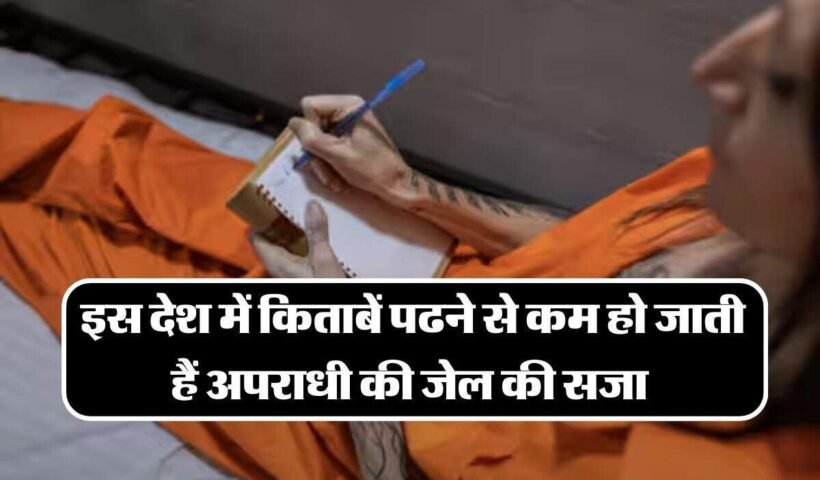 इस देश में किताबें पढने से कम हो जाती
हैं अपराधी की जेल की सजा